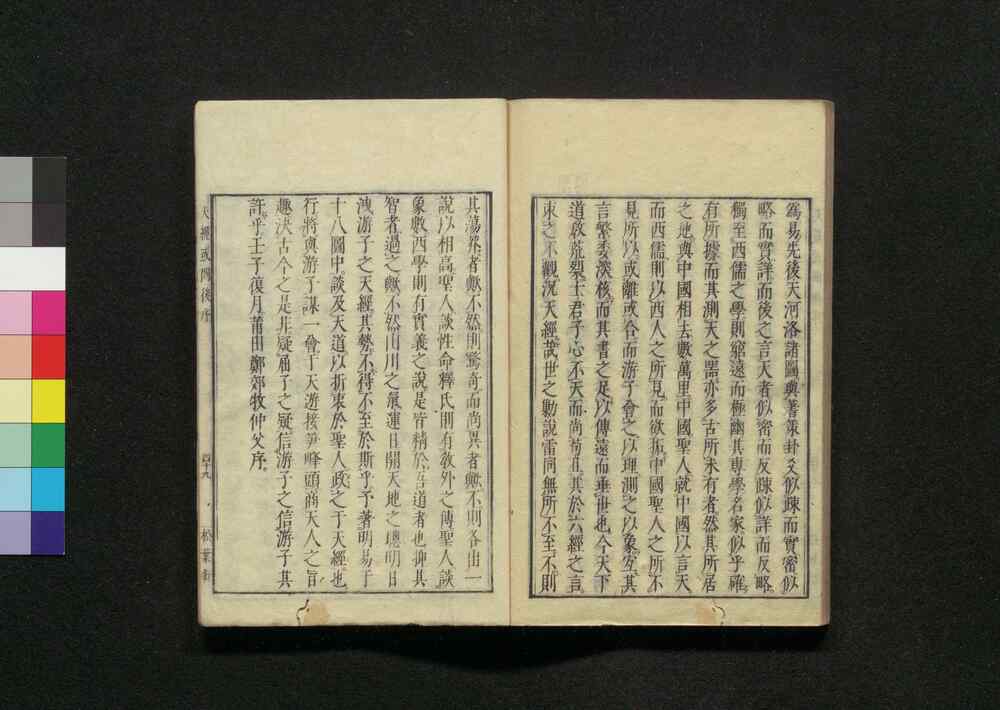 爲易先後天河洛諸圖與蓍策卦爻似疎而實密似
略而實詳而後之言天者似密而反疎似詳而反略
獨至西儒之學則窮遠而極幽其專學名家似乎確
有所據而其測天之器亦多古所未有者然其所居
之地與中國相去數萬里中國聖人就中國以言天
而西儒則以西人之所見而欲扳中國聖人之所不
見所以或離或合而游子會之以理測之以象宐其
言繁委深核而其書之足以傳遠而垂世也今天下
道敎荒裂士君子心不天而尚苟且其於六經之言
束之不觀況天經哉世之勦說雷同無所不至不則
其蕩泆者歟不然則驚奇而尚異者歟不則各出一
說以相高聖人談性命釋氏則有敎外之傳聖人談
象數西學則有實義之說是皆精於吾道者也抑其
智者過之歟不然山川之氣運日開天地之聰明日
洩游子之天經其勢不得不至於斯乎予著明易于
十八圖中談及天道以折衷於聖人政之于天經也
行將與游子謀一會于天遊接笋峰頭商天人之旨
趣決古今之是非疑屈子之疑信游子之信游子其
許乎壬子復月莆田鄭郊牧仲父序
天經或問後序
四十九
松葉軒